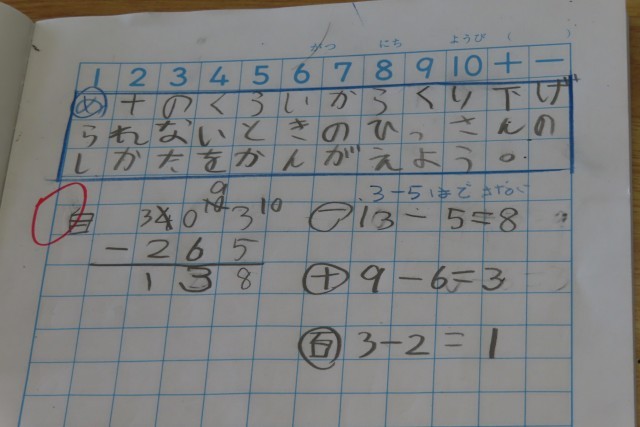 がつ にち ようび ( )
1 2 3 4 5 6 7 8 9 10 + −
め 十のくらいからくり下げ
られないときのひっさんの
しかたをかんがえよう。
3-5はできない
9
三 34 0 10 3 10 一 13-5=8
- 2 6 5
1 3 8 十 9-6=3
百 3-2=1